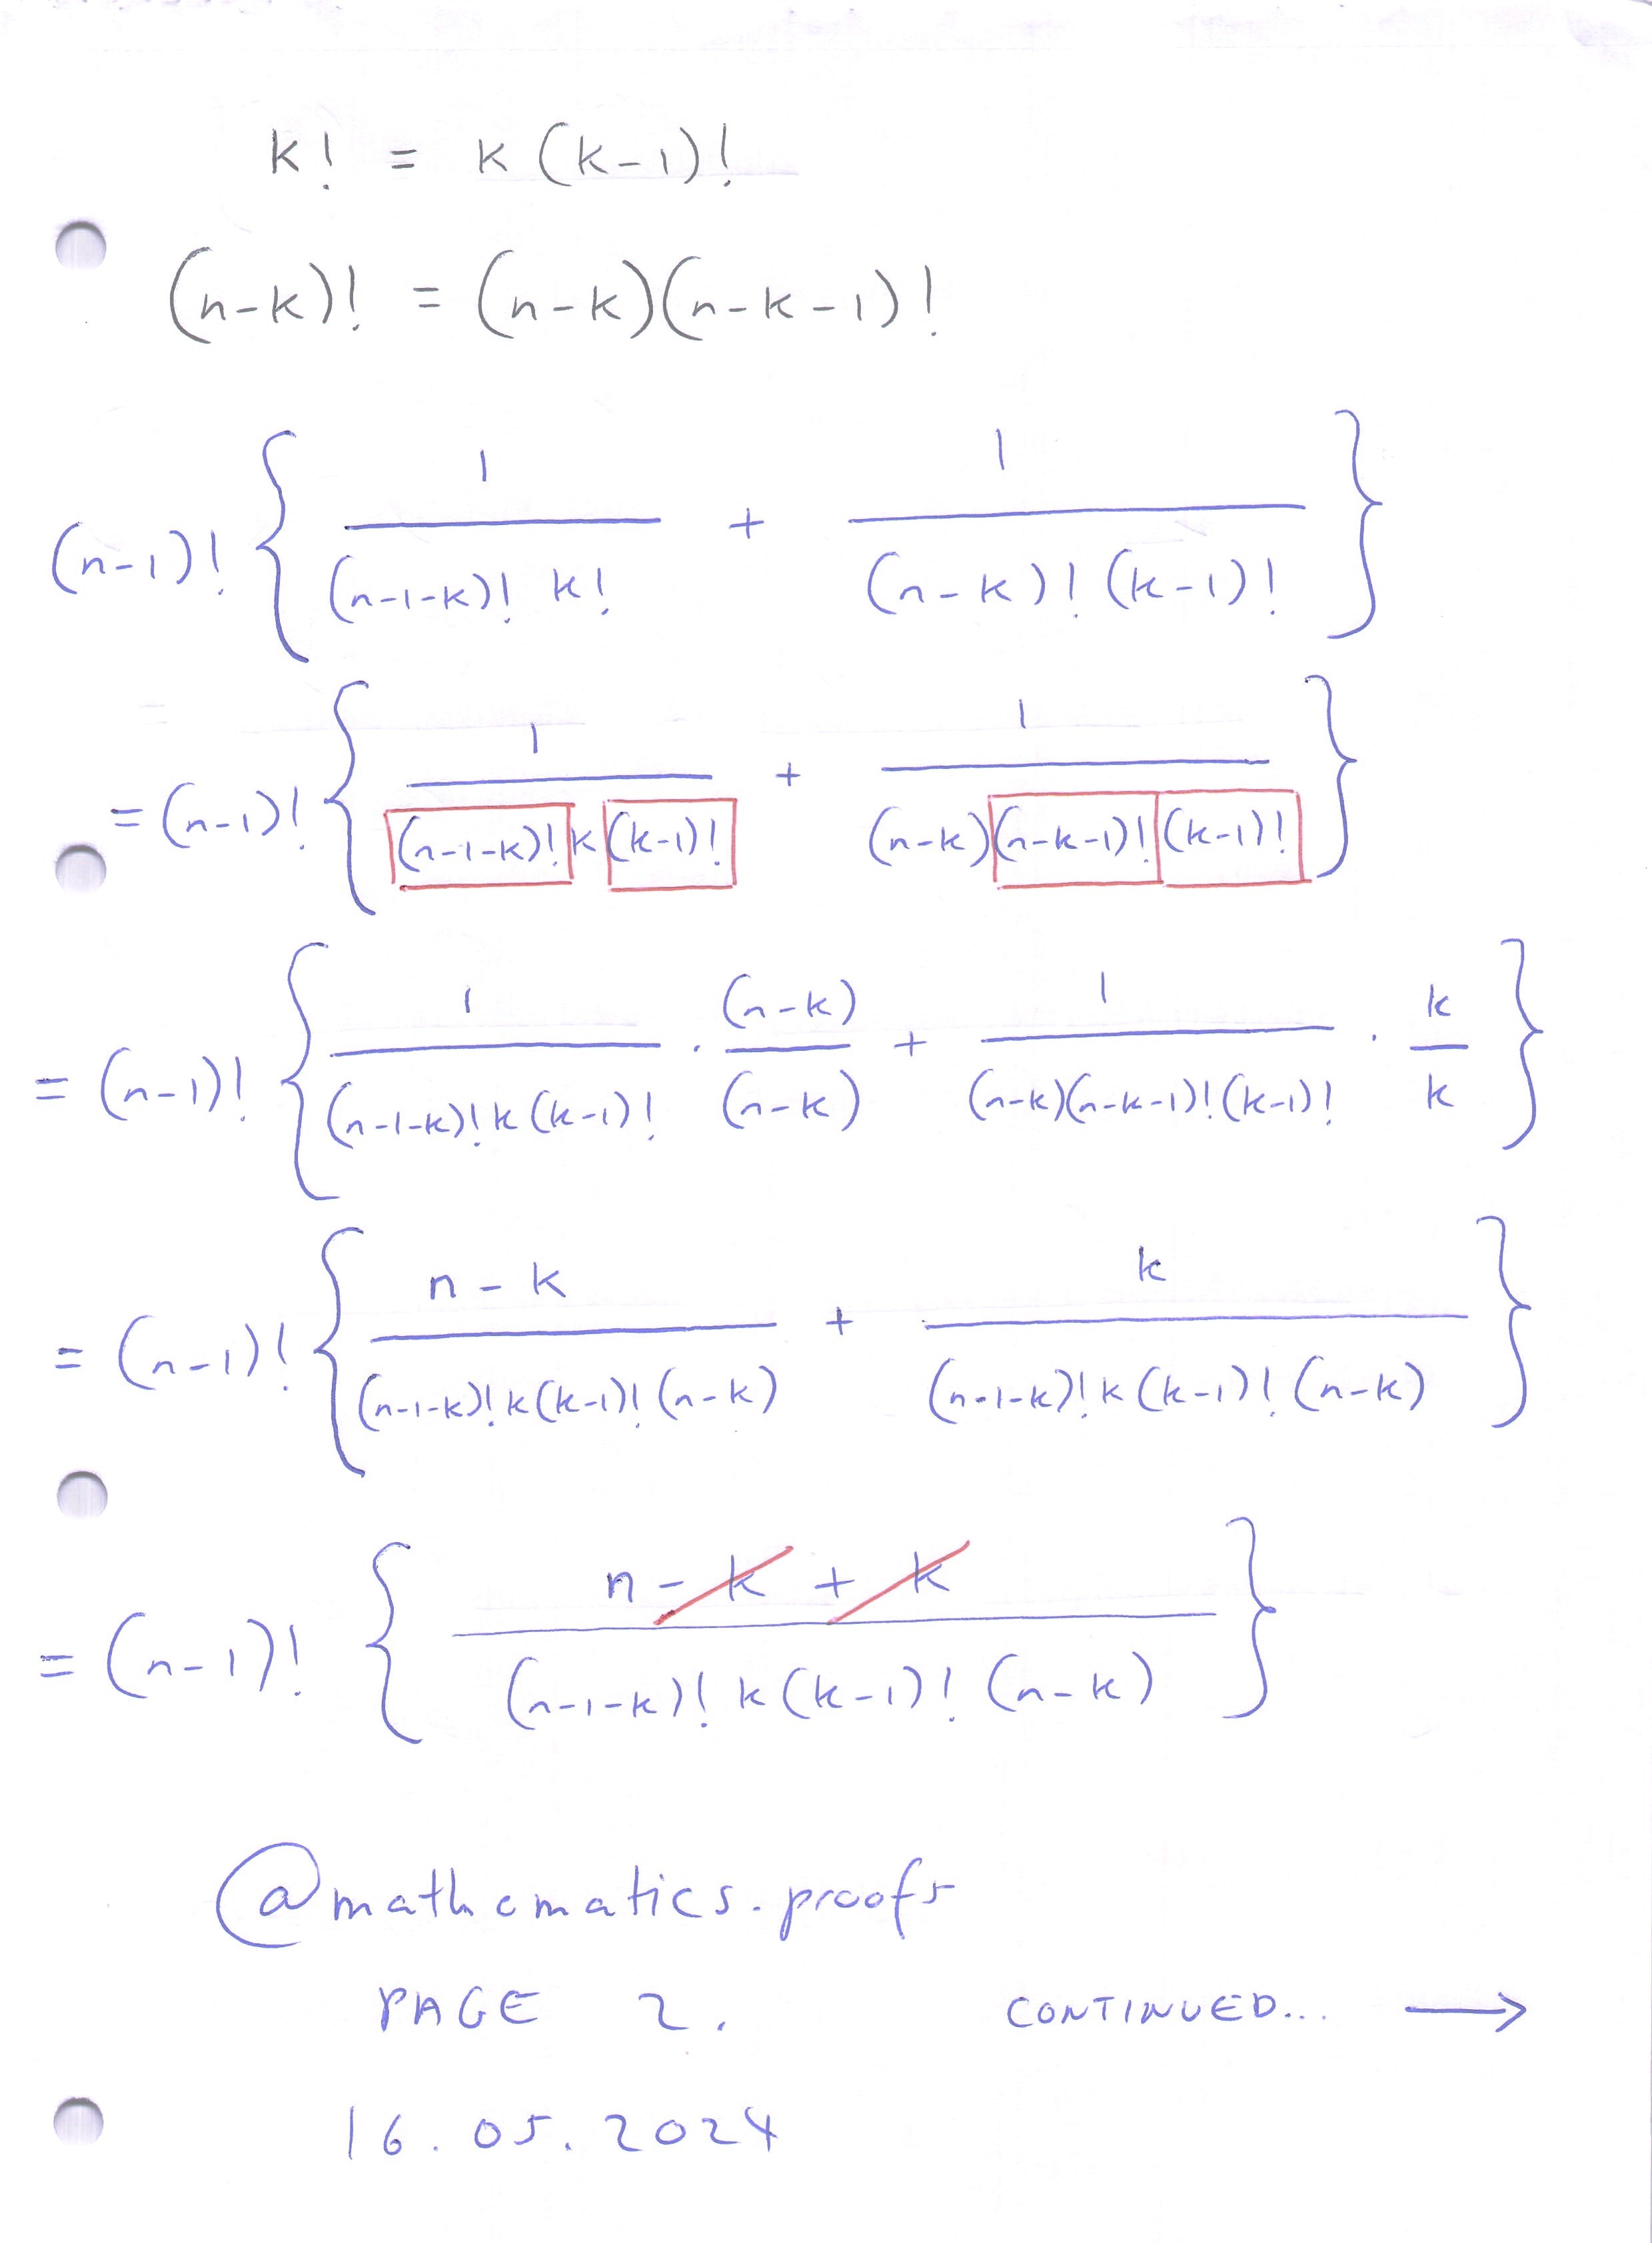 k! = k(k-1)!
(n-k)! = (n-k)(n-k-1)!
(n-1)! { 1/((n-1-k)! k!) + 1/((n-k)! (k-1)!) }
= (n-1)! { 1/((n-1-k)! k (k-1)!) + 1/((n-k)(n-k-1)! (k-1)!) }
= (n-1)! { 1/((n-1-k)! k (k-1)!) · (n-k)/(n-k) + 1/((n-k)(n-k-1)! (k-1)!) · k/k }
= (n-1)! { (n-k)/((n-1-k)! k (k-1)! (n-k)) + k/((n-1-k)! k (k-1)! (n-k)) }
= (n-1)! { (n-k+k)/((n-1-k)! k (k-1)! (n-k)) }
@mathematics.proofs
PAGE 2. CONTINUED... →
16.05.2024